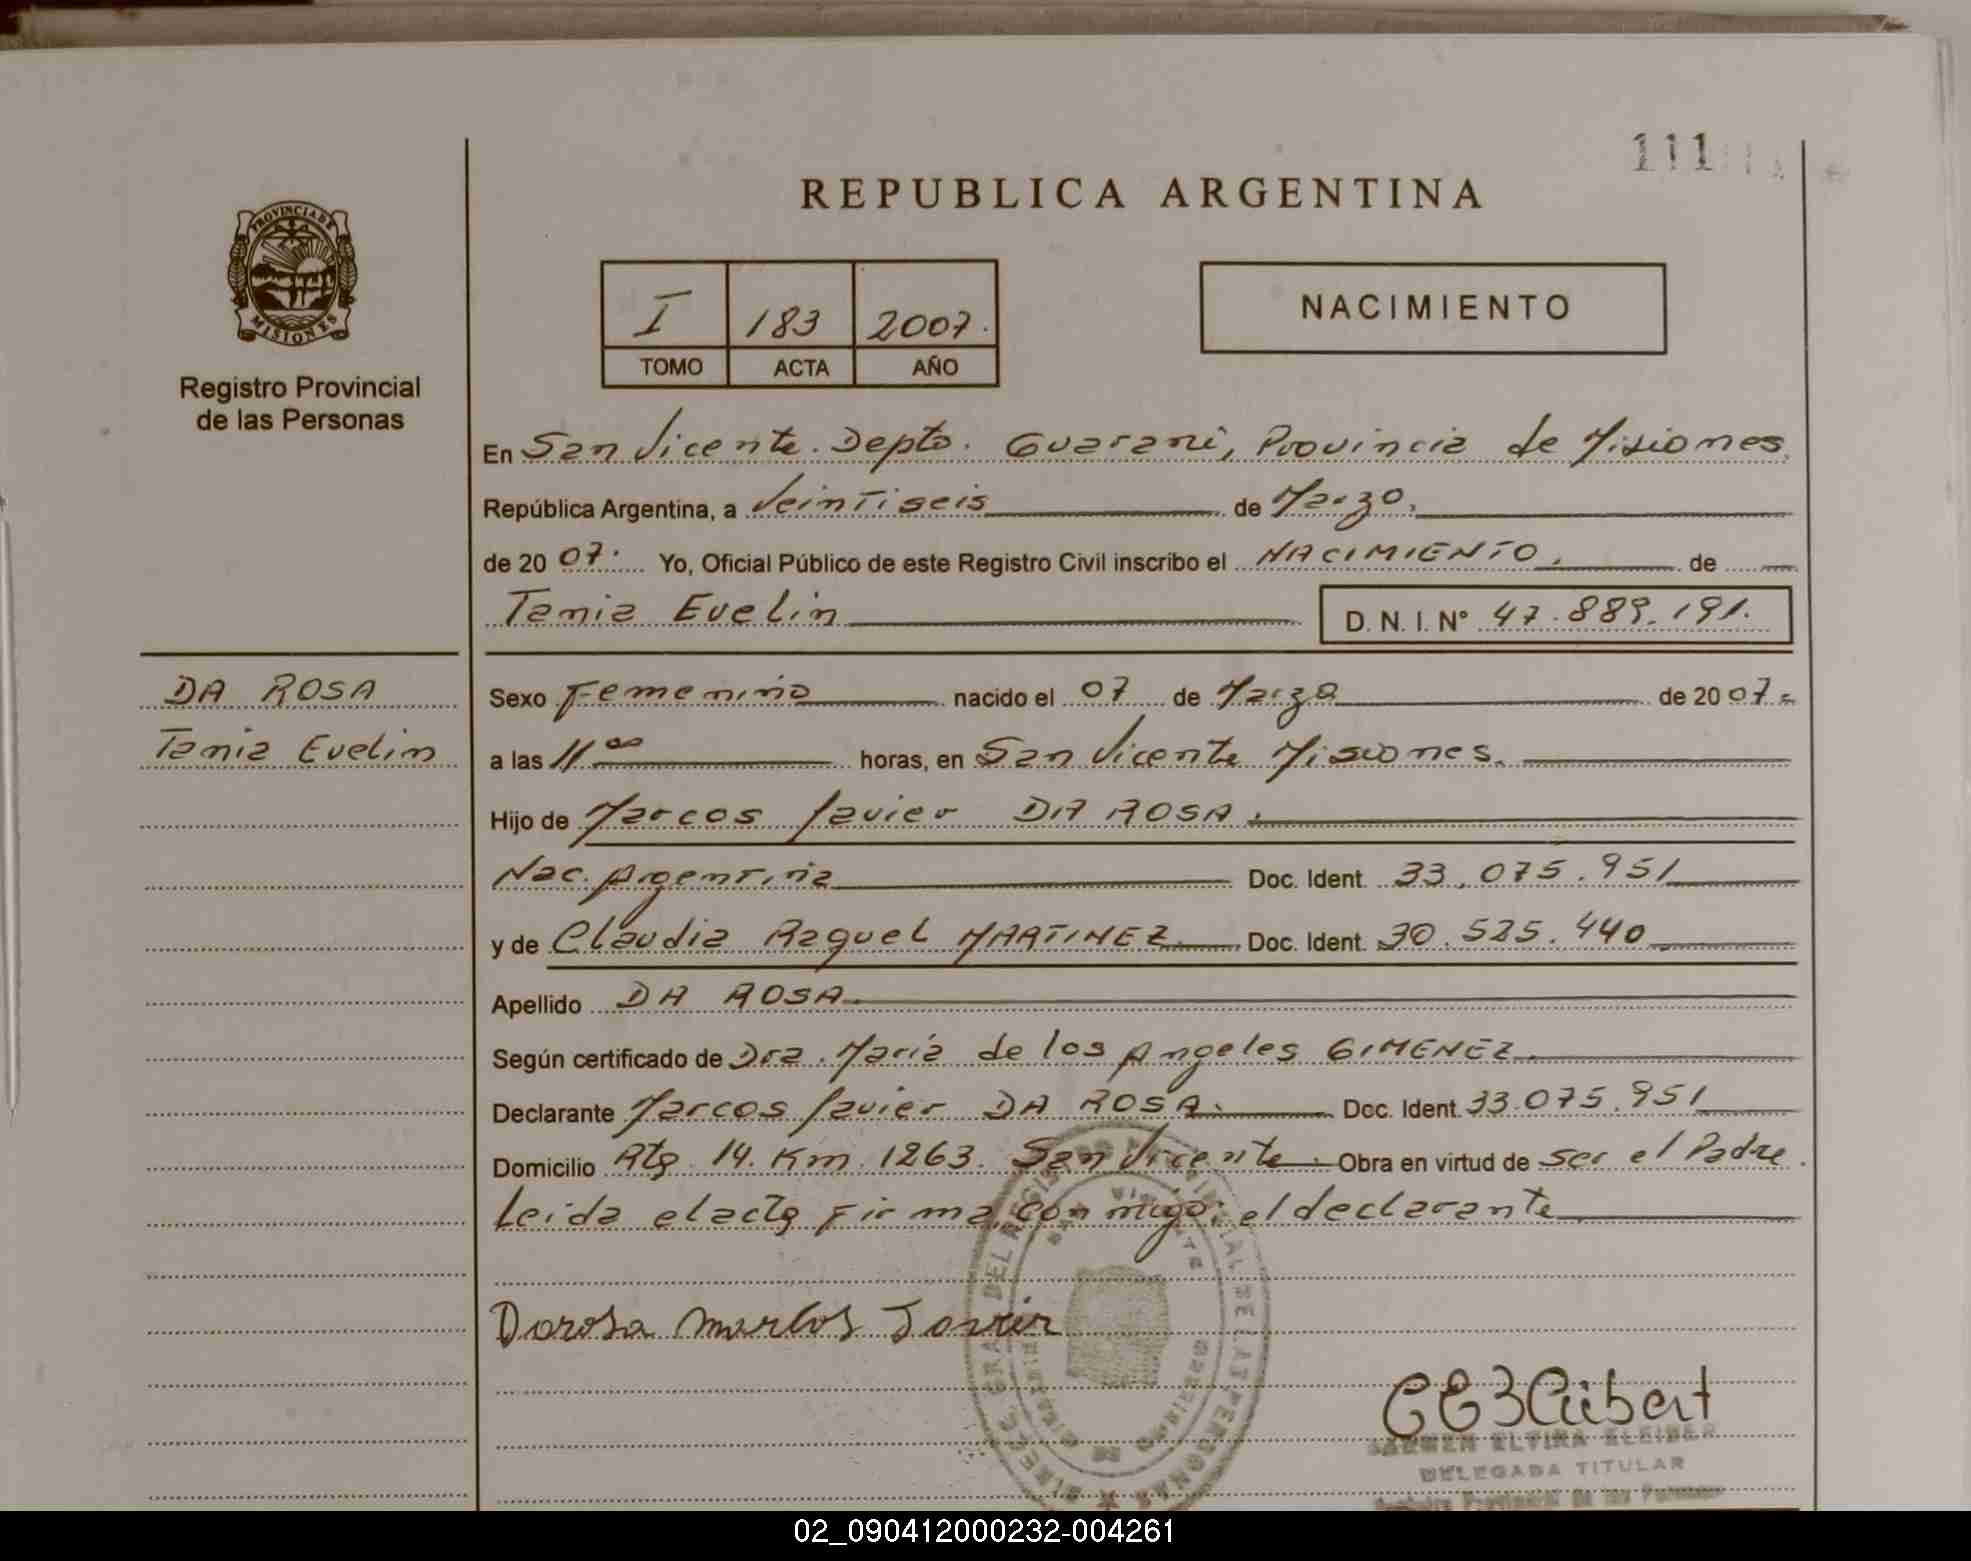 111
REPUBLICA ARGENTINA
PROVINCIA DE
MISIONES
Registro Provincial
de las Personas
I 183 2007.
TOMO ACTA AÑO
NACIMIENTO
En San Vicente. Depto. Guarani, Provincia de Misiones.
República Argentina, a Veintiseis de Marzo.
de 20 07. Yo, Oficial Público de este Registro Civil inscribo el NACIMIENTO. de
Tania Evelin D. N. I. N° 47.889.191.
DA ROSA
Tania Evelin
Sexo Femenino nacido el 07 de Marzo de 20 07.
a las 11 00 horas, en San Vicente Misiones.
Hijo de Marcos Javier DA ROSA.
Nac. Argentina Doc. Ident. 33.075.951
y de Claudia Raquel MARTINEZ Doc. Ident. 30.525.440
Apellido DA ROSA
Según certificado de Dra. María de los Angeles GIMENEZ
Declarante Marcos Javier DA ROSA. Doc. Ident. 33.075.951
Domicilio Rta. 14. Km. 1263. San Vicente. Obra en virtud de ser el Padre.
Leida el acta firma conmigo: el declarante
Darosa Marcos Javier
CARMEN ELVIRA KLEIBER
DELEGADA TITULAR
02_090412000232-004261